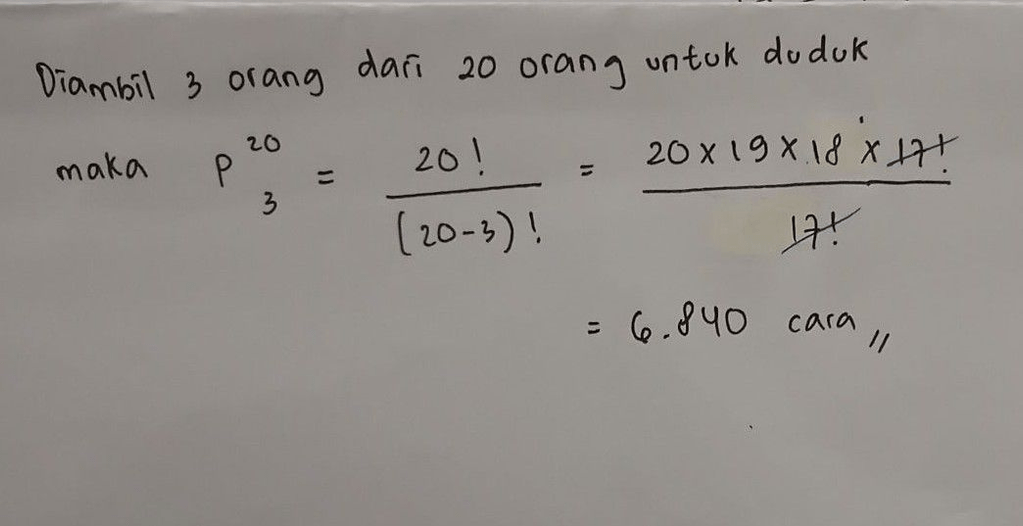 Diambil 3 orang dari 20 orang untuk duduk
maka P 20 3 = 20! / (20-3)! = 20 x 19 x 18 x 17! / 17!
= 6.840 cara,,